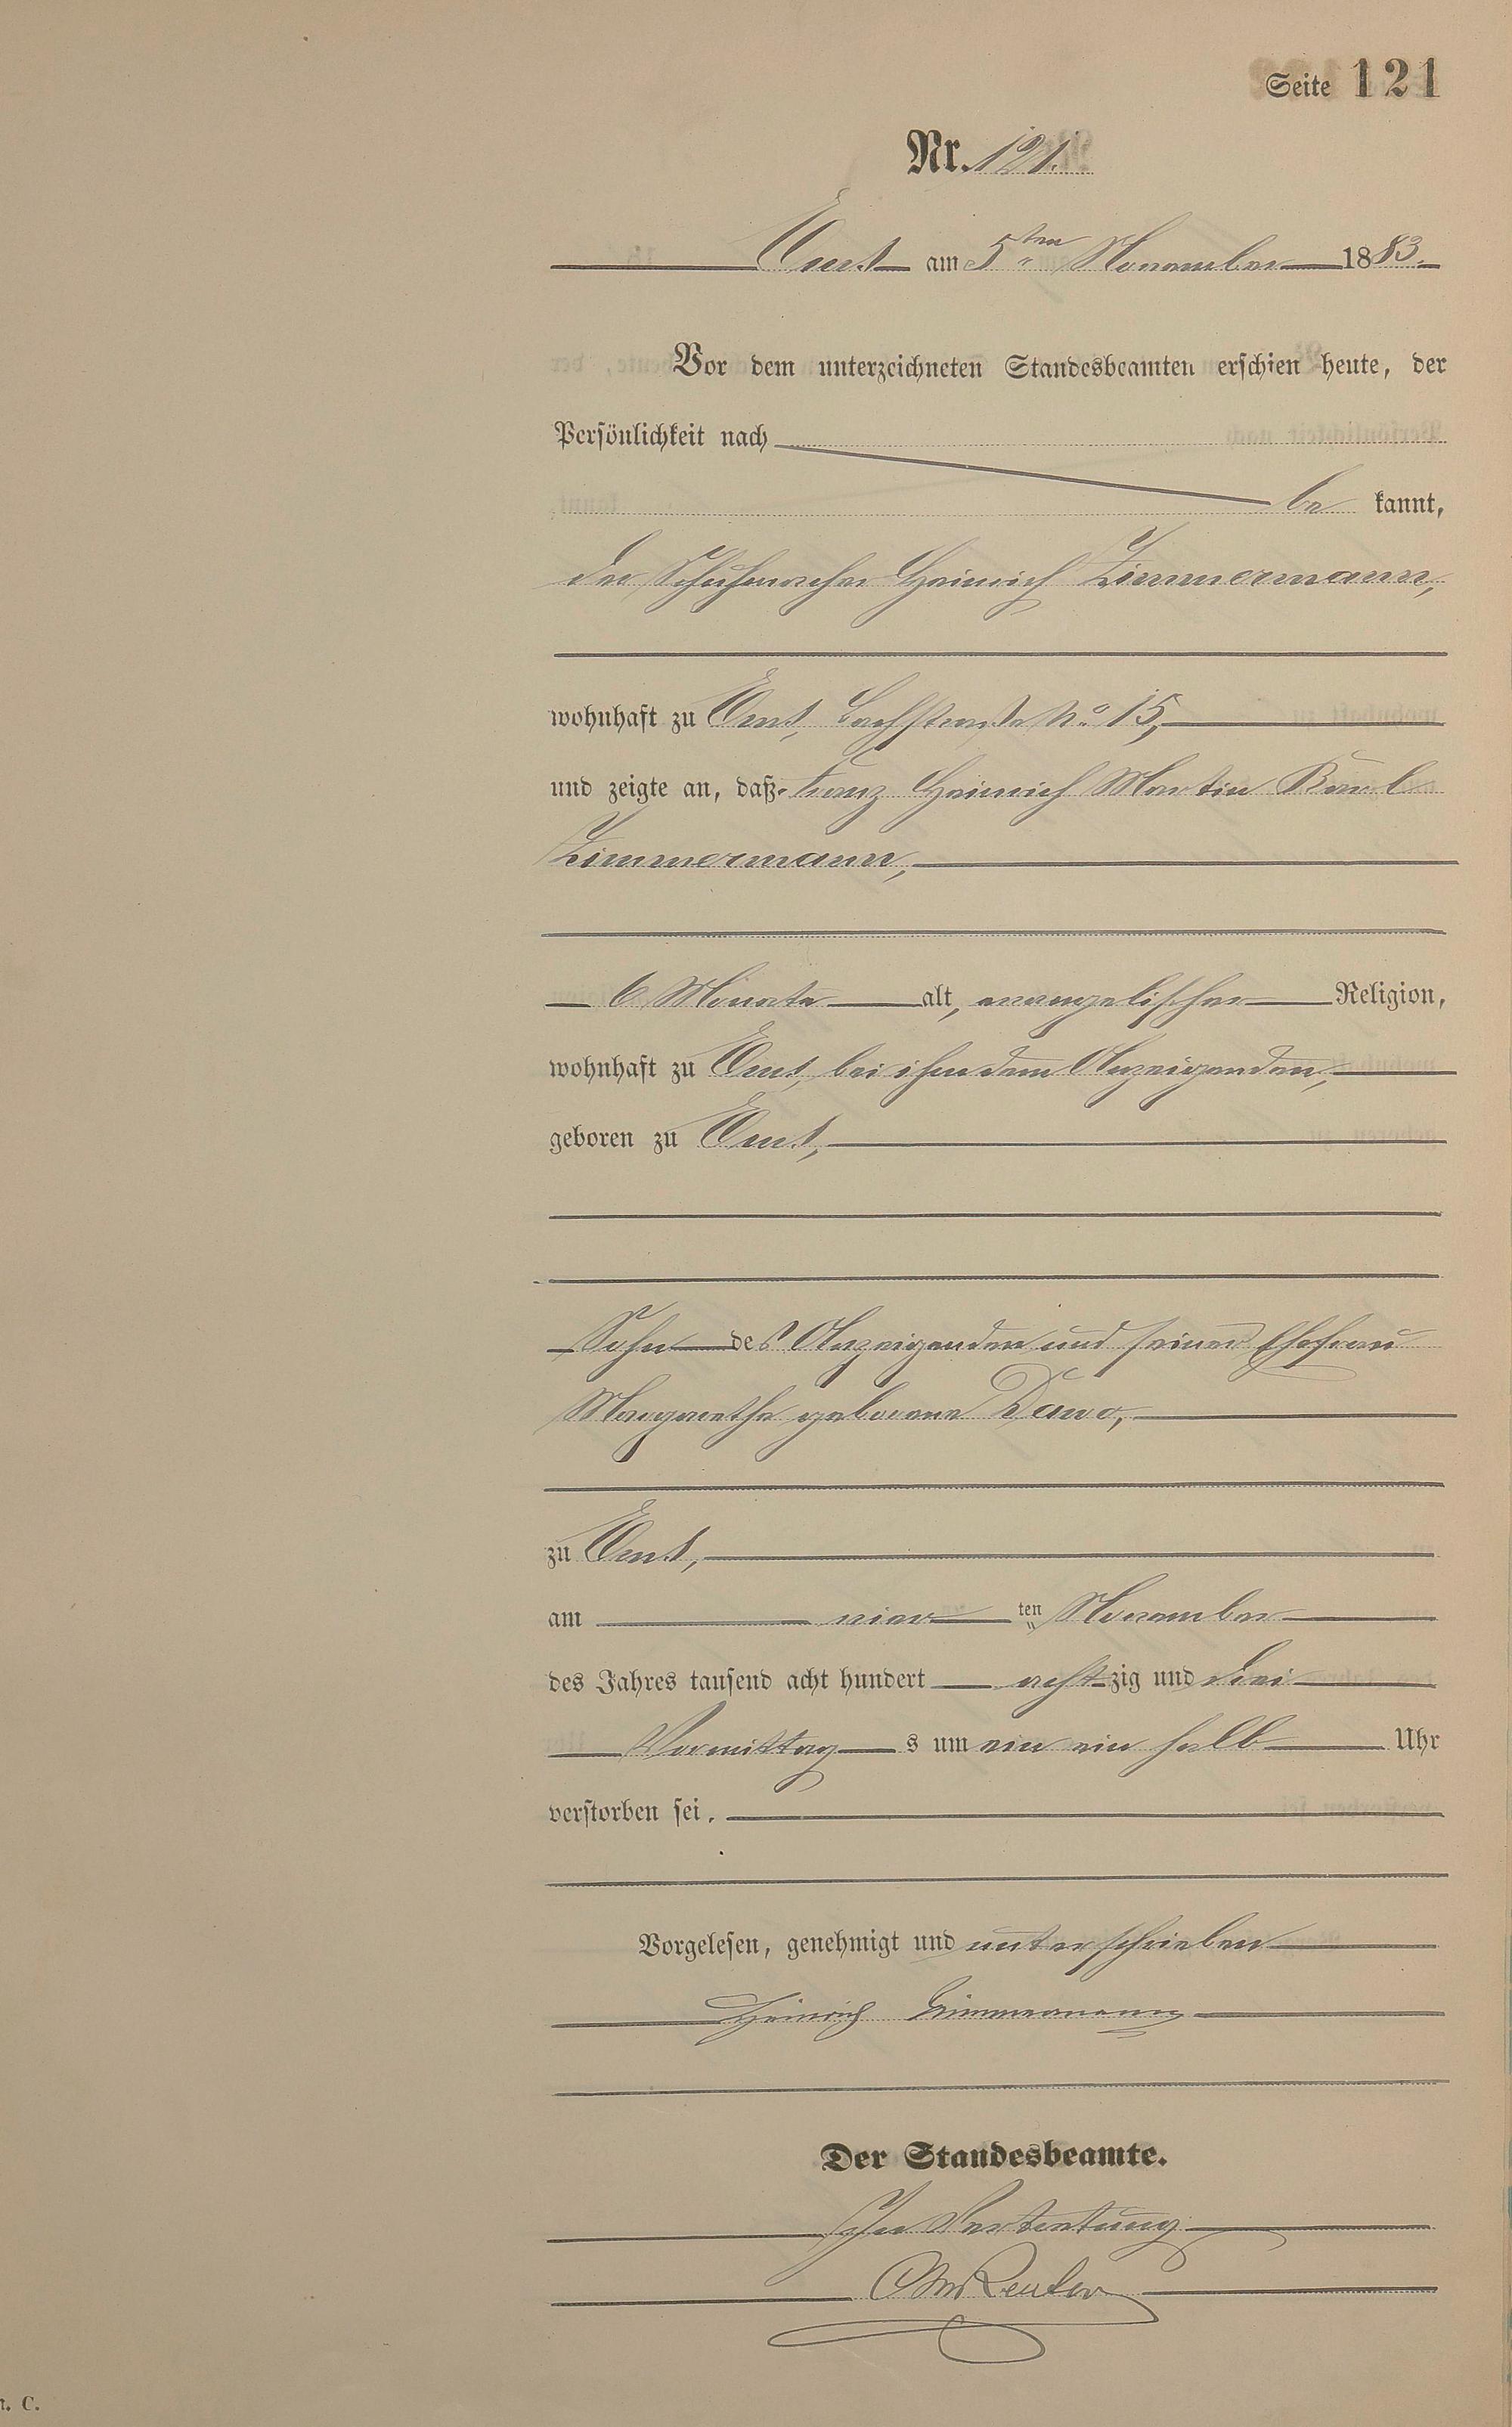 Seite 121
Nr. 121.
Ems am 5ten November 1883.
Vor dem unterzeichneten Standesbeamten erschien heute, der
Persönlichkeit nach
be kannt,
der Schuhmacher Heinrich Zimmermann,
wohnhaft zu Ems, Bachstraße No 15,
und zeigte an, daß Franz Heinrich Martin Karl
Zimmermann,
6 Monate alt, evangelischer Religion,
wohnhaft zu Ems, bei ihm dem Anzeigenden,
geboren zu Ems,
Sohn des Anzeigenden und seiner Ehefrau
Margarethe geborene Dawo,
zu Ems,
am vier ten November
des Jahres tausend acht hundert acht zig und drei
Vormittag s um ein ein halb Uhr
verstorben sei.
Vorgelesen, genehmigt und unterschrieben
Heinrich Zimmermann
Der Standesbeamte.
In Vertretung
Reuter
n. C.